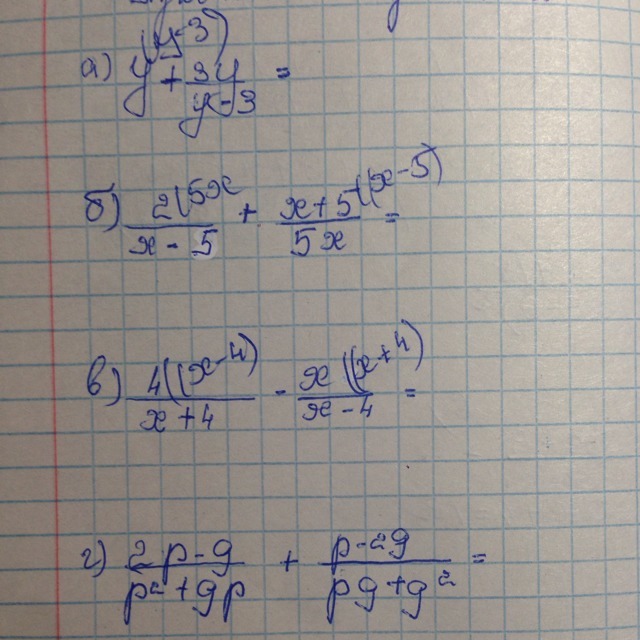 а) y^{(y-3)} + \frac{3y}{y-3} =
б) \frac{2^{(5x}}{x-5} + \frac{x+5^{((x-5)}}{5x} =
в) \frac{4^{((x-4)}}{x+4} - \frac{x^{((x+4)}}{x-4} =
г) \frac{2p-g}{p^2+gp} + \frac{p-2g}{pg+g^2} =